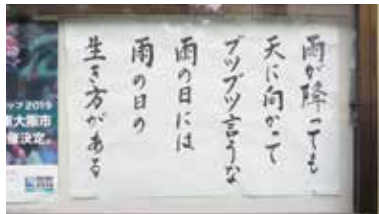 雨が降っても
天に向かって
ブツブツ言うな
雨の日には
雨の日の
生き方がある
ップ2019
東大阪市
催決定。